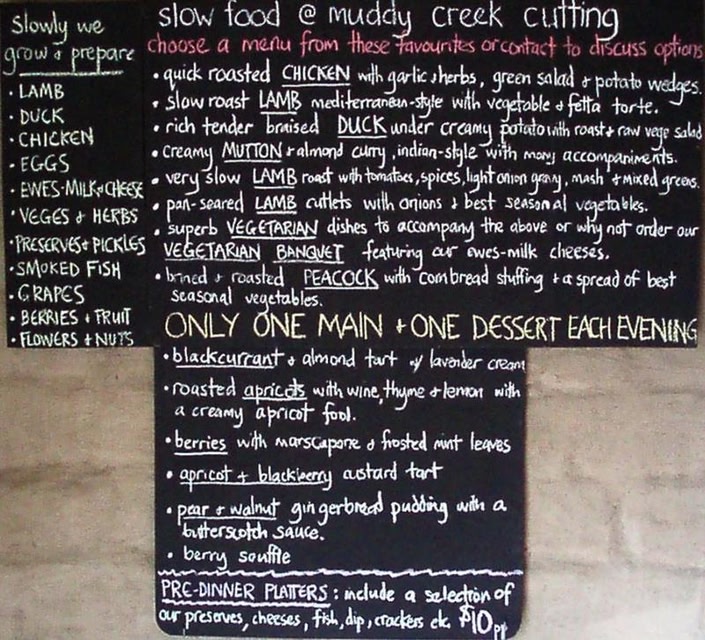 Slowly we
grow & prepare
• LAMB
• DUCK
• CHICKEN
• EGGS
• EWES-MILK & CHEESE
• VEGES & HERBS
• PRESERVES & PICKLES
• SMOKED FISH
• GRAPES
• BERRIES & FRUIT
• FLOWERS & NUTS
slow food @ muddy creek cutting
choose a menu from these favourites or contact to discuss options
• quick roasted CHICKEN with garlic & herbs, green salad & potato wedges.
• slow roast LAMB mediterranean-style with vegetable & fetta torte.
• rich tender braised DUCK under creamy potato with roast & raw vege salad
• creamy MUTTON & almond curry, indian-style with many accompaniments.
• very slow LAMB roast with tomatoes, spices, light onion gravy, mash & mixed greens.
• pan-seared LAMB cutlets with onions & best seasonal vegetables.
• superb VEGETARIAN dishes to accompany the above or why not order our
VEGETARIAN BANQUET featuring our ewes-milk cheeses.
• brined & roasted PEACOCK with cornbread stuffing & a spread of best
seasonal vegetables.
ONLY ONE MAIN & ONE DESSERT EACH EVENING
• blackcurrant & almond tart w/ lavender cream
• roasted apricots with wine, thyme & lemon with
a creamy apricot fool.
• berries with marscapone & frosted mint leaves
• apricot & blackberry custard tart
• pear & walnut gingerbread pudding with a
butterscotch sauce.
• berry souffle
PRE-DINNER PLATTERS: include a selection of
our preserves, cheeses, fish, dip, crackers etc, $10 pp